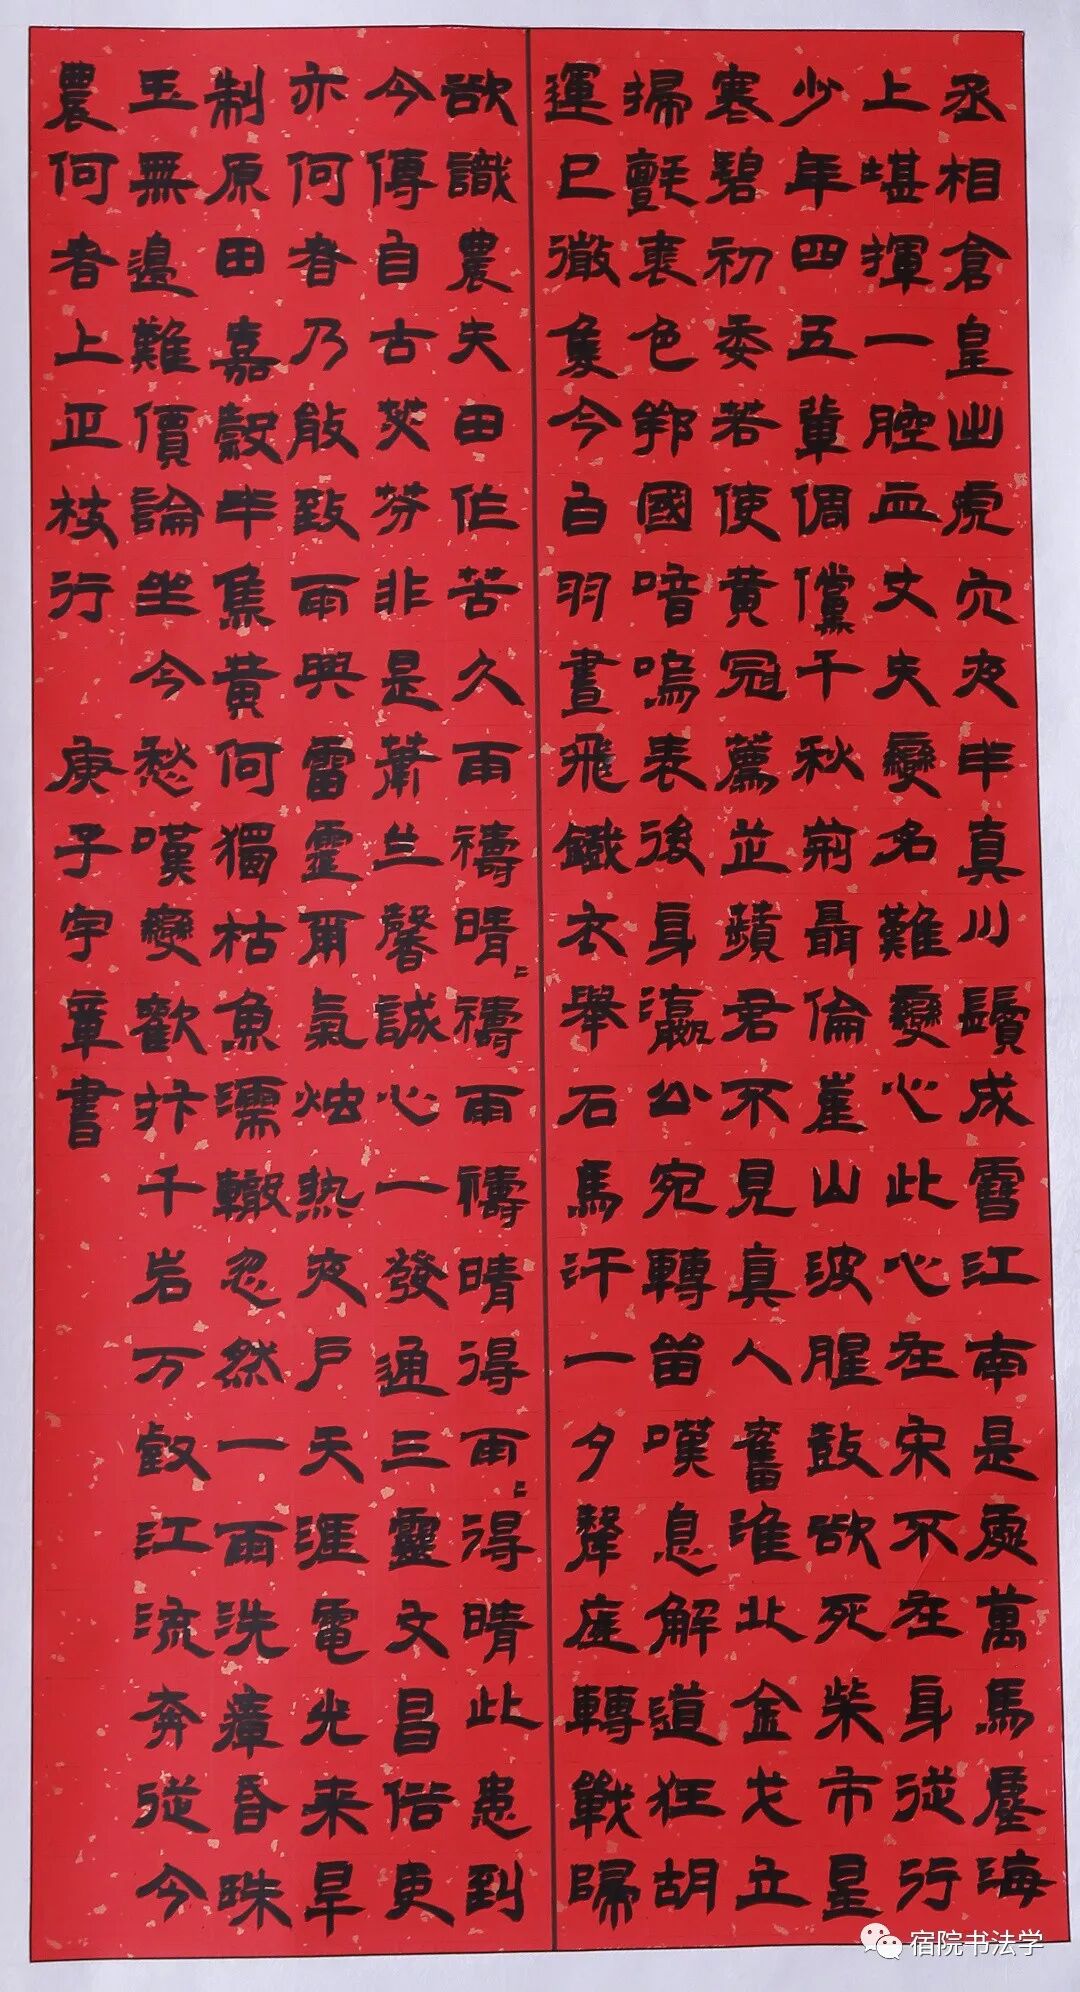 丞相倉皇出虎穴夾半真川鬢成霜江南是處萬馬塵海
上堪揮一腔血丈夫變名難變心此心在宋不在身從行
少年四五輩倜儻千秋荊聶倫崖山波腥鼓欲死柴市星
寒碧初委若使黃冠薦芷蘋君不見真人奮淮北金戈立
掃氈裘色鄴國喑嗚表後身瀛公宛轉笛嘆息解道狂胡
運已徹隻今白羽晝飛鐵衣舉石馬汗一夕聲虛轉戰歸
欲識農夫田作苦久雨禱晴〻禱雨禱晴得雨〻得晴此患到
今傳自古苾芬非是蕭兰馨誠心一發通三靈文昌俗吏
亦何者乃敢致雨興雷霆爾氣燭熱夾戶天涯電光来旱
制原田嘉穀半焦黃何獨枯魚濡轍忽然一雨洗瘴昏珠
玉無邊難價論坐今愁嘆變歡抃千岩万叡江流奔從今
農何者上正枝行 庚子宇章書
宿院书法学